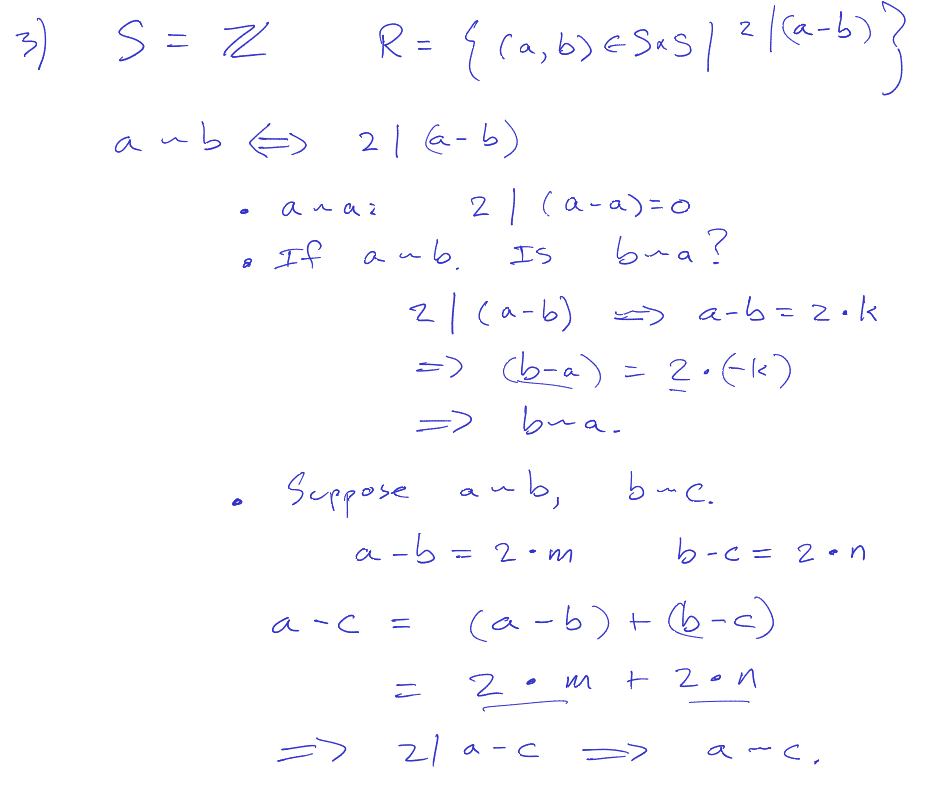 3) S = ℤ R = { (a,b) ∈ S×S | 2 | (a-b) }
a ~ b ⟺ 2 | (a-b)
• a ~ a: 2 | (a-a)=0
• If a ~ b. Is b ~ a?
2 | (a-b) ⟹ a-b = 2·k
⟹ (b-a) = 2·(-k)
⟹ b ~ a.
• Suppose a ~ b, b ~ c.
a-b = 2·m b-c = 2·n
a-c = (a-b) + (b-c)
= 2·m + 2·n
⟹ 2 | a-c ⟹ a ~ c.